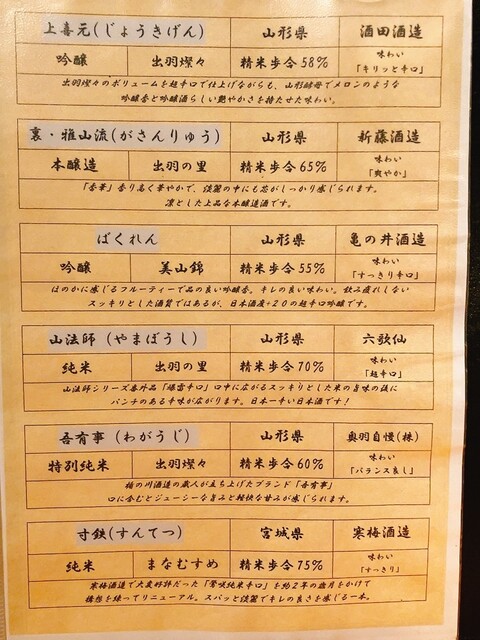 上喜元(じょうきげん) 山形県 酒田酒造
吟醸 出羽燦々 精米歩合58% 味わい「キリッと辛口」
出羽燦々のボリュームを超辛口で仕上げながらも、山形酵母でメロンのような
吟醸香と吟醸酒らしい艶やかさを持たせた味わい。
裏・雅山流(がさんりゅう) 山形県 新藤酒造
本醸造 出羽の里 精米歩合65% 味わい「爽やか」
「香華」香り高く華やかで、淡麗の中にも芯がしっかり感じられます。
凛とした上品な本醸造酒です。
ばくれん 山形県 亀の井酒造
吟醸 美山錦 精米歩合55% 味わい「すっきり辛口」
ほのかに感じるフルーティーで品の良い吟醸香。キレの良い味わい。飲み疲れしない
スッキリとした酒質ではあるが、日本酒度+20の超辛口吟醸です。
山法師 (やまぼうし) 山形県 六歌仙
純米 出羽の里 精米歩合70% 味わい「超辛口」
山法師シリーズ番外品「爆雷辛口」口中に広がるスッキリとした米の旨味の後に
パンチのある辛味が広がります。日本一辛い日本酒です!
吾有事 (わがうじ) 山形県 奥羽自慢(株)
特別純米 出羽燦々 精米歩合60% 味わい「バランス良し」
楯の川酒造の蔵人が立ち上げたブランド「吾有事」
口に含むとジューシーな旨みと軽快な甘みが感じられます。
寸鉄(すんてつ) 宮城県 寒梅酒造
純米 まなむすめ 精米歩合75% 味わい「すっきり」
寒梅酒造で大変好評だった「鶯咲純米辛口」を約2年の歳月をかけて
構想を練ってリニューアル。スパッと淡麗でキレの良さを感じる一本。